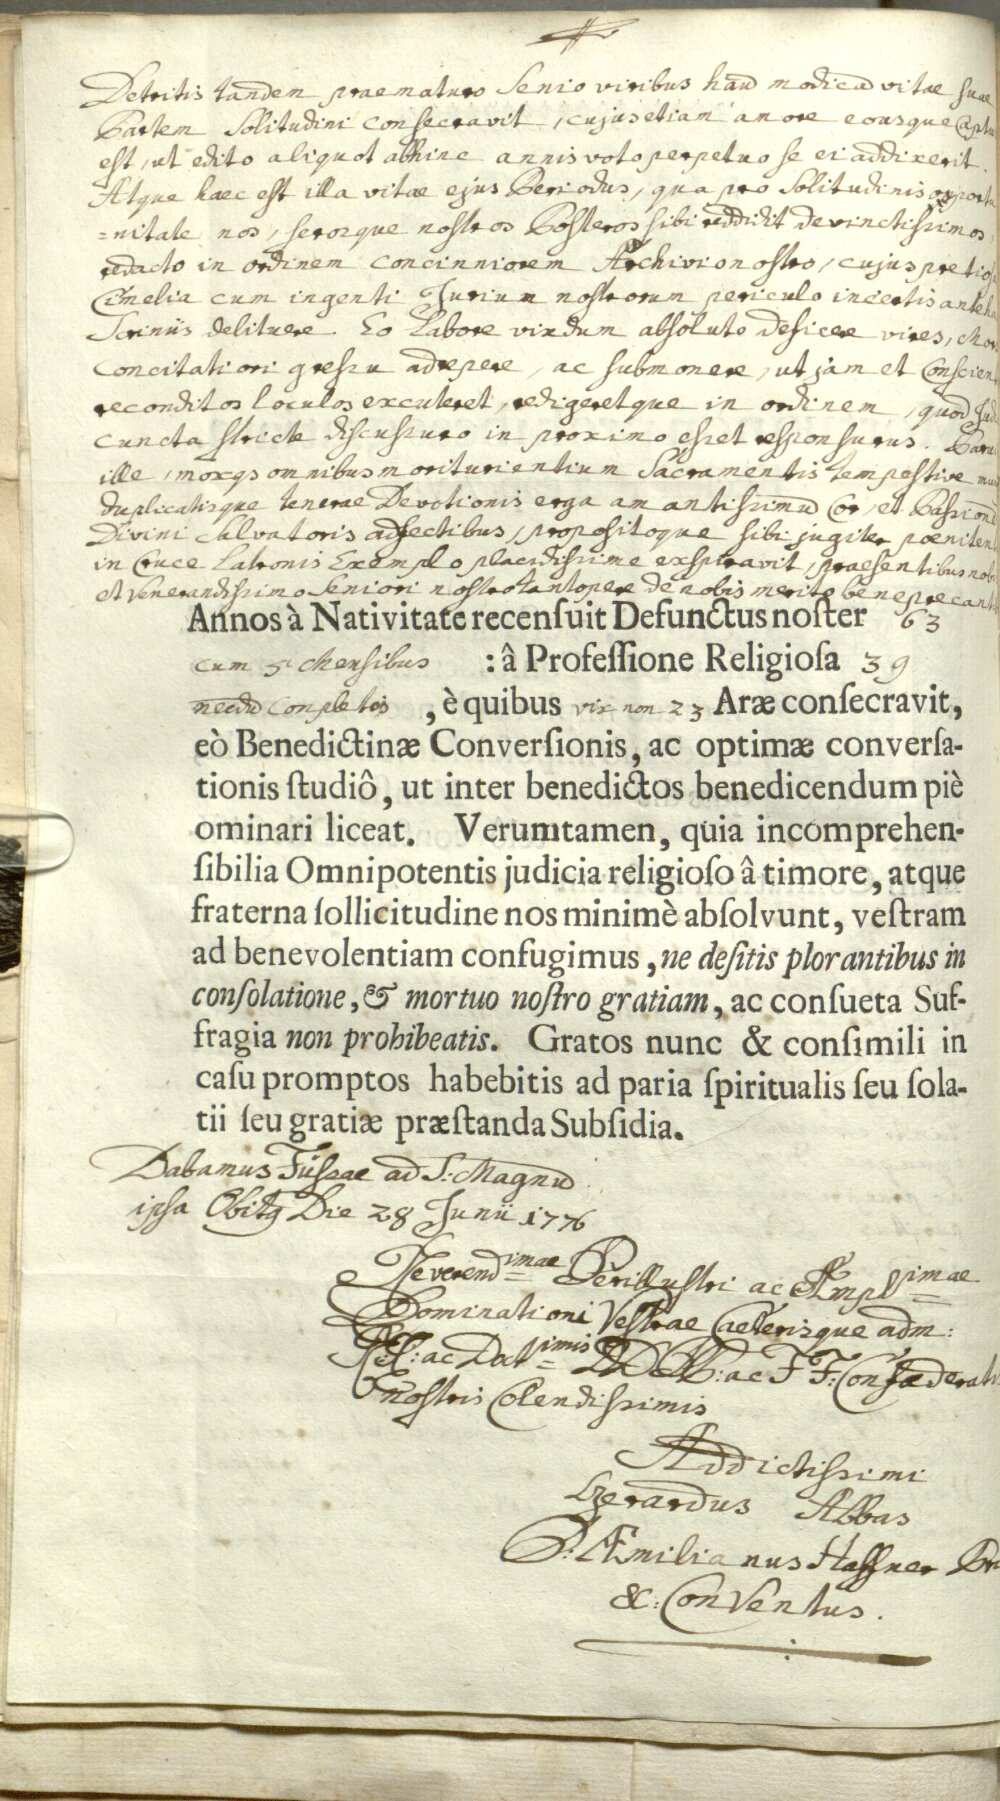 Detritis tandem praematuro Senio viribus haud modicad vitae suae
Partem Solitudini consecravit, cujus etiam amore eousque
est, ut edito aliquot abhinc annis voto perpetuo se ei addixerit.
Atque haec est illa vitae ejus Periodus, qua pro Solitudinis
=nitate nos, serosque nostros Posteros sibi reddidit devinctissimos,
redacto in ordinem concinniorem Archivio nostro, cujus
Cimelia cum ingenti Jurium nostrorum periculo incertis
Scriniis delituere. Eo Labore vixdum absoluto deficere vires,
concitatiori gressu adrepere, ac submonere, ut jam et
reconditos loculos excuteret, redigeretque in ordinem, quod
cuncta stricte discussuro in proximo esset responsurus.
ille, moxqs omnibus moriturientium Sacramentis tempestive
duplicatisque tenerae Devotionis erga amantissimū Cor, et
Divini Salvatoris adfectibus, propositoque sibi jugiter
in Cruce Latronis Exemplo placidissime exspiravit, praesentibus
et Venerendissimo Seniori nostro tantopere de nobis merito bene
Annos à Nativitate recenſuit Defunctus noſter 63
cum 5 Mensibus : â Profeſſione Religioſa 39
necdū completis , è quibus vix non 23 Aræ conſecravit,
eò Benedictinæ Converſionis, ac optimæ converſa-
tionis ſtudiô, ut inter benedictos benedicendum piè
ominari liceat. Verumtamen, quia incomprehen-
ſibilia Omnipotentis judicia religioſo â timore, atque
fraterna ſollicitudine nos minimè abſolvunt, veſtram
ad benevolentiam confugimus, ne deſitis plorantibus in
conſolatione, & mortuo noſtro gratiam, ac conſueta Suf-
fragia non prohibeatis. Gratos nunc & conſimili in
caſu promptos habebitis ad paria ſpiritualis ſeu ſola-
tii ſeu gratiæ præſtanda Subſidia.
Dabamus Füssae ad S. Magnū
ipsa Obitq Die 28 Junii 1776
Reverendimae Perillustri ac Amplimae
Dominationi Vestrae Caeterisque adm:
RR: ac Doctimis DD. PP: ac FF:
nostris Colendissimis
Addictissimi
Gerardus Abbas
P. Æmilianus Haffner
&: Conventus.